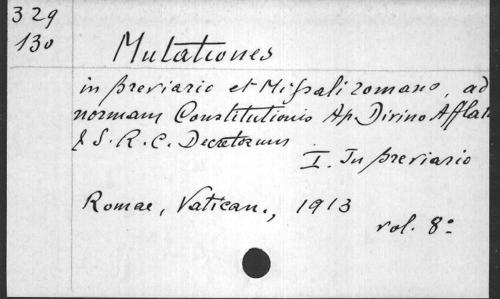 329
130
Mutationes
in Breviario et Missali romano, ad
normam Constitutionis Ap. Divino Afflatu
& S. R. C. Decretorum
I. In Breviario
Romae, Vatican., 1913
vol. 8º